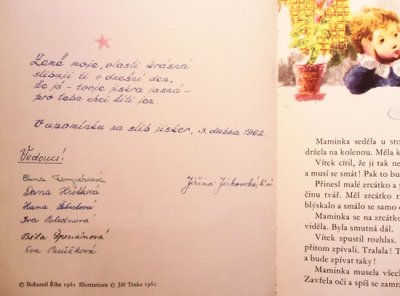 Země moje, vlasti krásná
slibuji ti v dnešní den,
že já - tvoje jiskra jasná -
pro tebe chci žíti jen.
V upomínku na slib jisker, 3. dubna 1962.
Vedoucí:
Dana Hrošková
Jiřina Jirkovská,
Hana
Iva Polednová
Běla
Eva
© Bohumil Říha 1961 Illustrations © Jiří Trnka 1961
Maminka seděla u sto
držela na kolenou. Měla k
Vítek cítil, že ji tak ne
a musí se smát! Pak to bu
Přinesl malé zrcátko a
činu tvář. Měl zrcátko r
blýskalo a smálo se samo o
Maminka se na zrcátko
viděla. Byla smutná dál.
Vítek spustil rozhlas.
přitom zpívali. Tralala! T
a bude zpívat taky!
Maminka musela všech
Zavřela oči a spíš se zamra